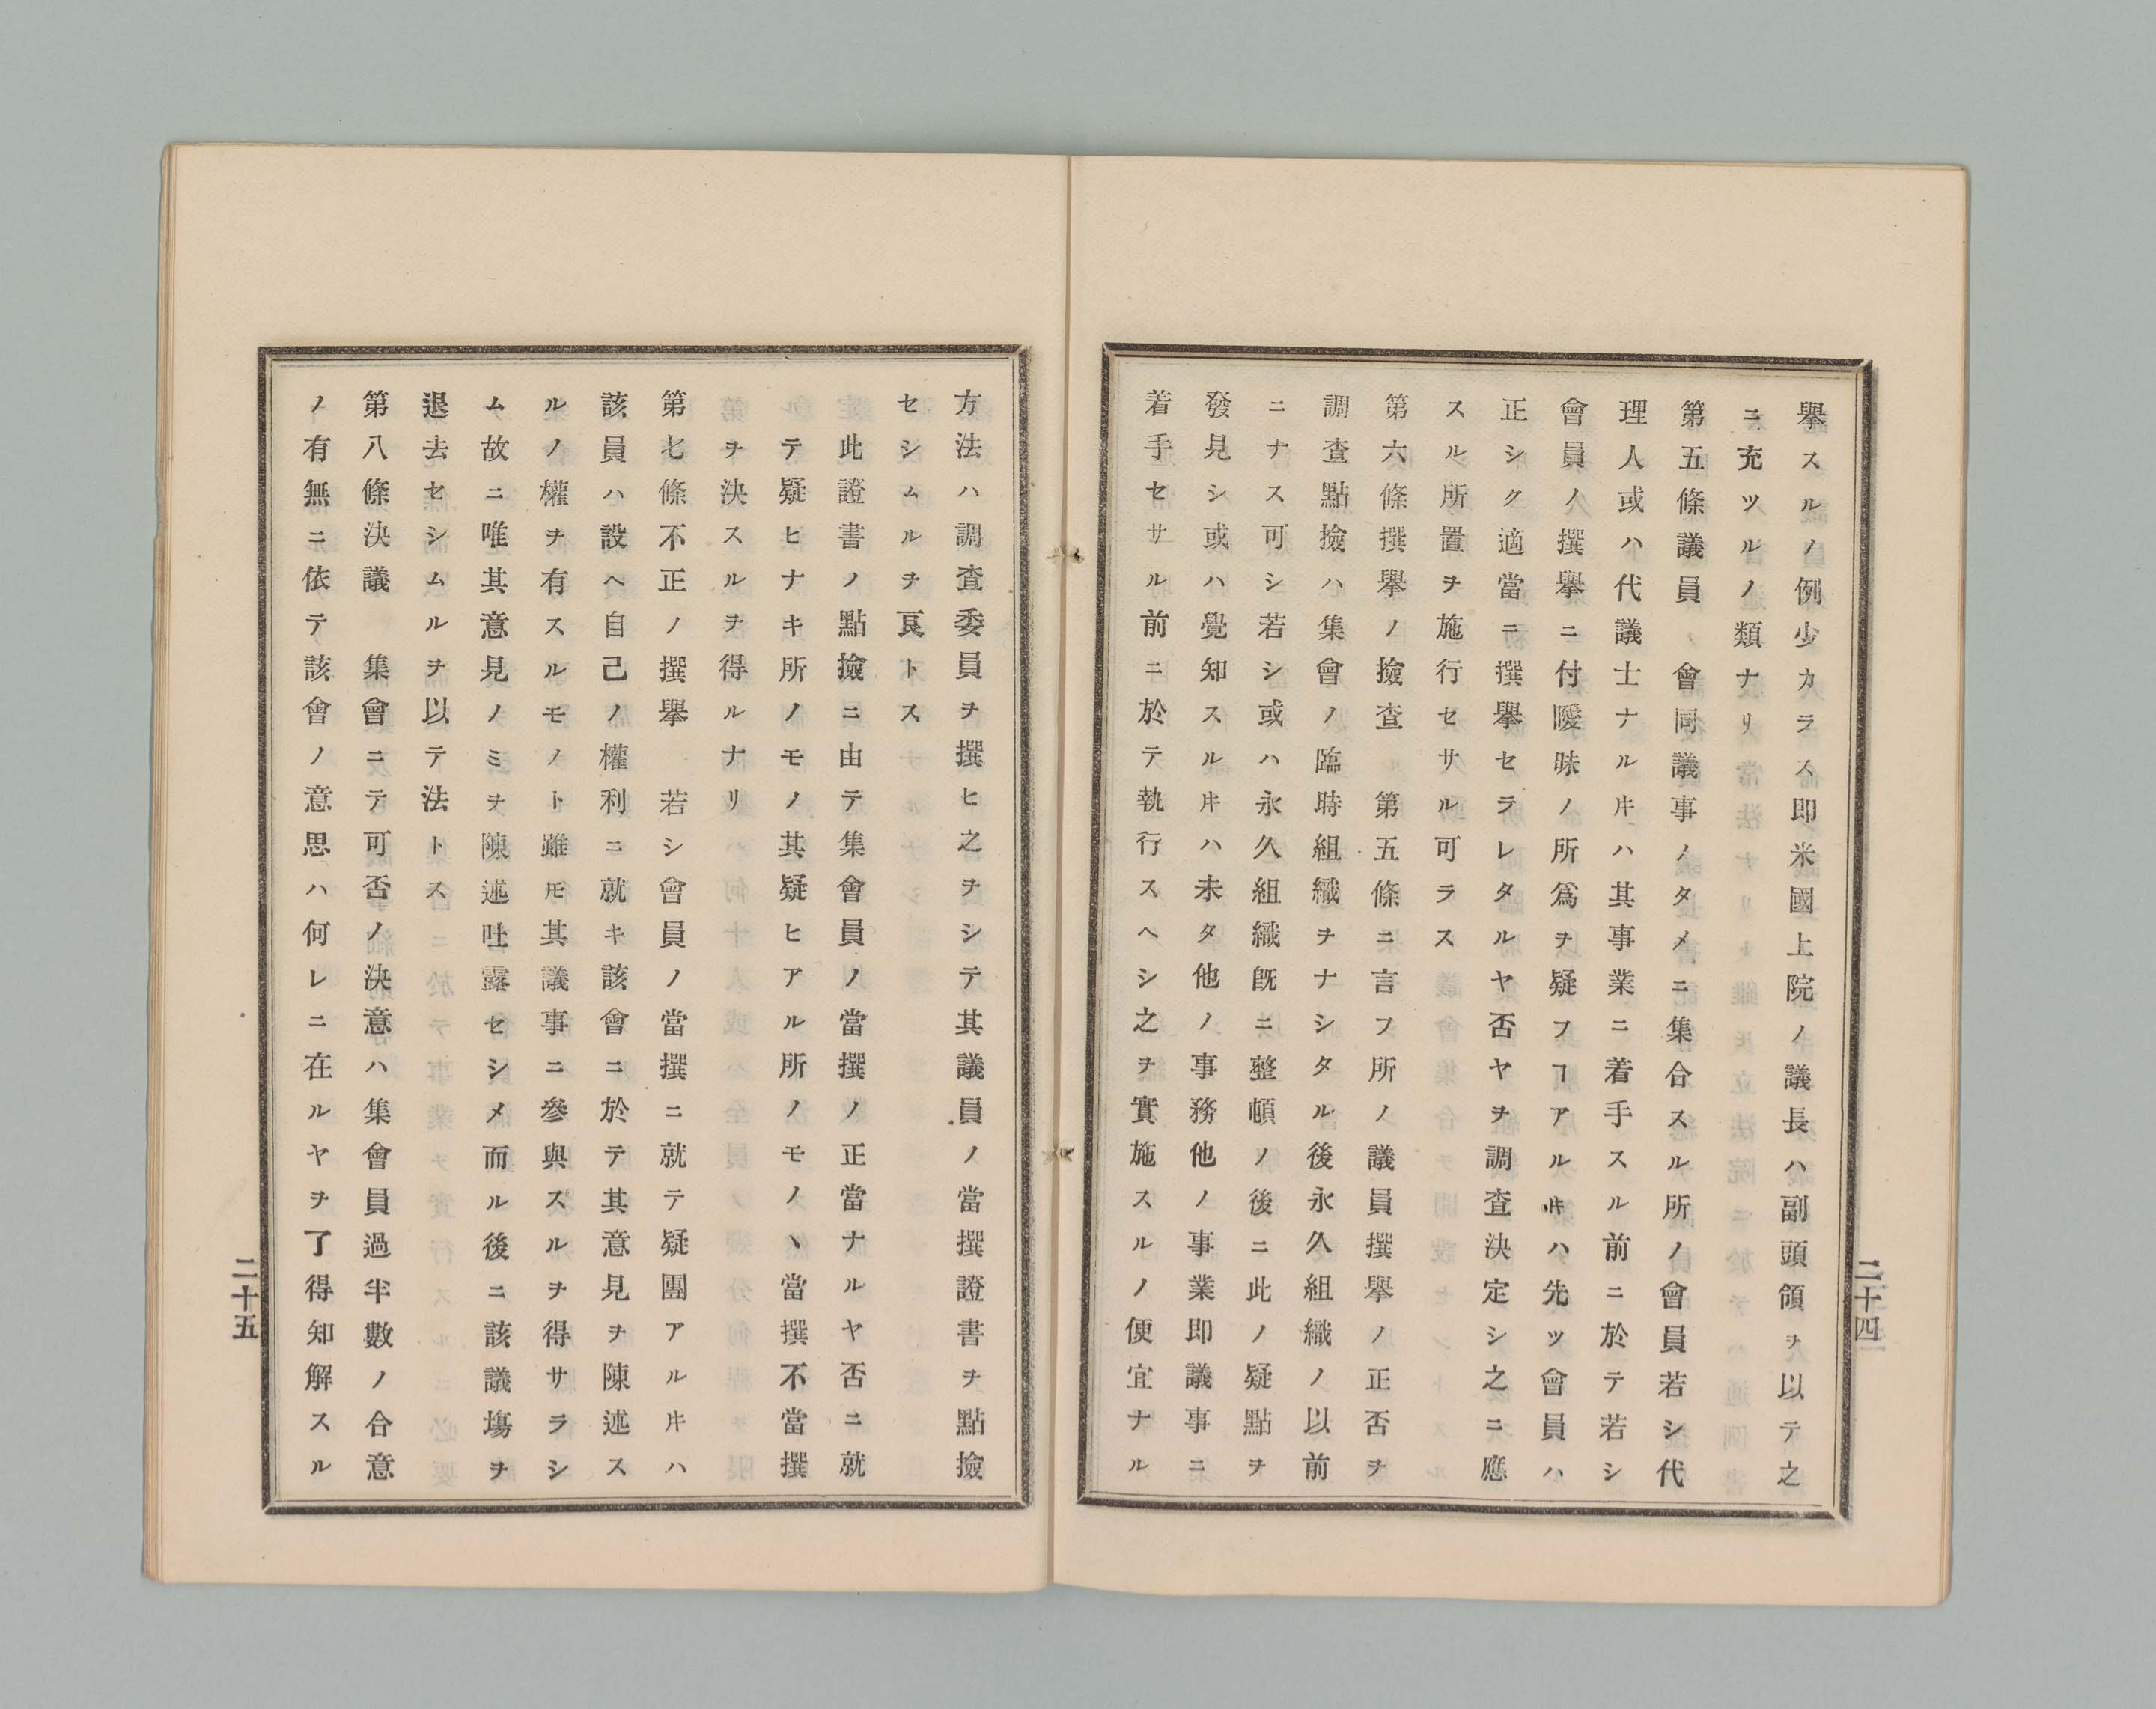 擧スルノ例少カラス即米國上院ノ議長ハ副頭領ヲ以テ之
ニ充ツルノ類ナリ
第五條議員ノ會同議事ノタメニ集合スル所ノ會員若シ代
理人或ハ代議士ナルキハ其事業ニ着手スル前ニ於テ若シ
會員ノ撰擧ニ付曖昧ノ所爲ヲ疑フヿアルキハ先ツ會員ハ
正シク適當ニ撰擧セラレタルヤ否ヤヲ調査決定シ之ニ應
スル所置ヲ施行セサル可ラス
第六條撰擧ノ撿査　第五條ニ言フ所ノ議員撰擧ノ正否ヲ
調査點撿ハ集會ノ臨時組織ヲナシタル後永久組織ノ以前
ニナス可シ若シ或ハ永久組織既ニ整頓ノ後ニ此ノ疑點ヲ
發見シ或ハ覺知スルキハ未タ他ノ事務他ノ事業即議事ニ
着手セサル前ニ於テ執行スヘシ之ヲ實施スルノ便宜ナル
二十四
方法ハ調査委員ヲ撰ヒ之ヲシテ其議員ノ當撰證書ヲ點撿
セシムルヲ良トス
此證書ノ點撿ニ由テ集會員ノ當撰ノ正當ナルヤ否ニ就
テ疑ヒナキ所ノモノ其疑ヒアル所ノモノヽ當撰不當撰
ヲ決スルヲ得ルナリ
第七條不正ノ撰擧　若シ會員ノ當撰ニ就テ疑團アルキハ
該員ハ設ヘ自己ノ權利ニ就キ該會ニ於テ其意見ヲ陳述ス
ルノ權ヲ有スルモノト雖𪜈其議事ニ參與スルヲ得サラシ
ム故ニ唯其意見ノミヲ陳述吐露セシメ而ル後ニ該議塲ヲ
退去セシムルヲ以テ法トス
第八條決議　集會ニテ可否ノ決意ハ集會員過半數ノ合意
ノ有無ニ依テ該會ノ意思ハ何レニ在ルヤヲ了得知解スル
二十五